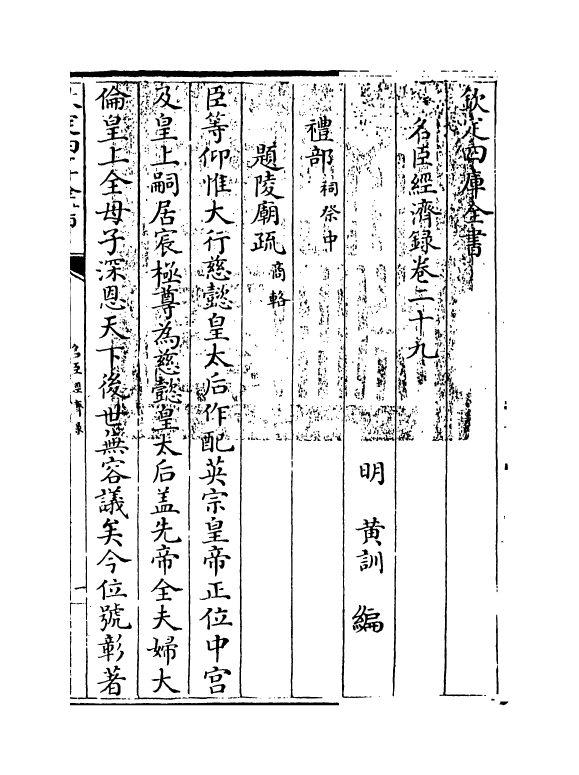 欽定四庫全書
名臣經濟録卷二十九
明 黄訓 編
禮部祠祭中
題陵廟疏商輅
臣等仰惟大行慈懿皇太后作配英宗皇帝正位中宮
及皇上嗣居宸極尊為慈懿皇太后盖先帝全夫婦大
倫皇上全母子深恩天下後世無容議矣今位號彰著
名臣經濟録